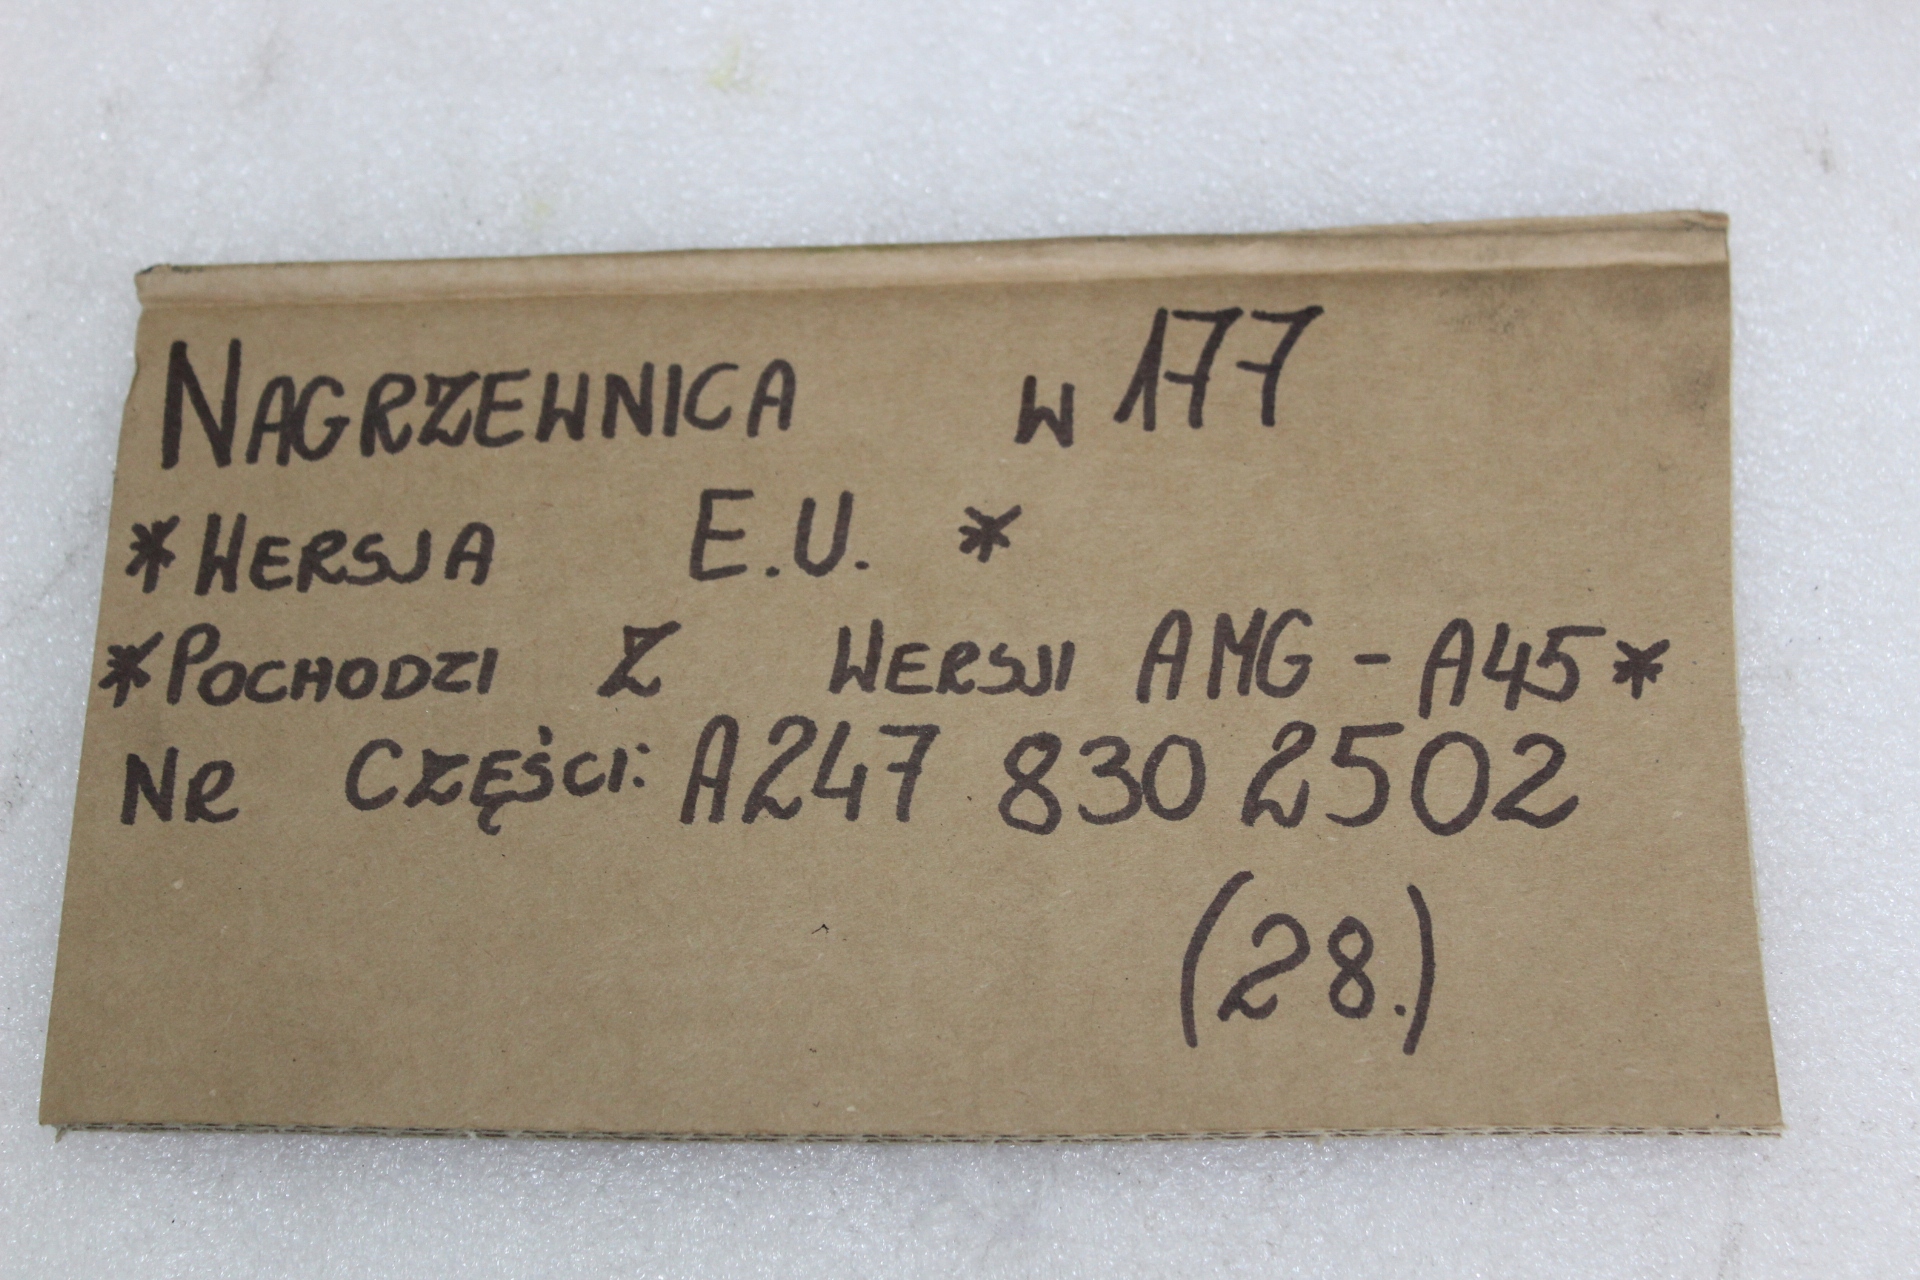 NAGRZEWNICA W177
*WERSJA E.U. *
*POCHODZI Z WERSJI AMG - A45*
NR CZĘŚCI: A247 830 2502
(28.)